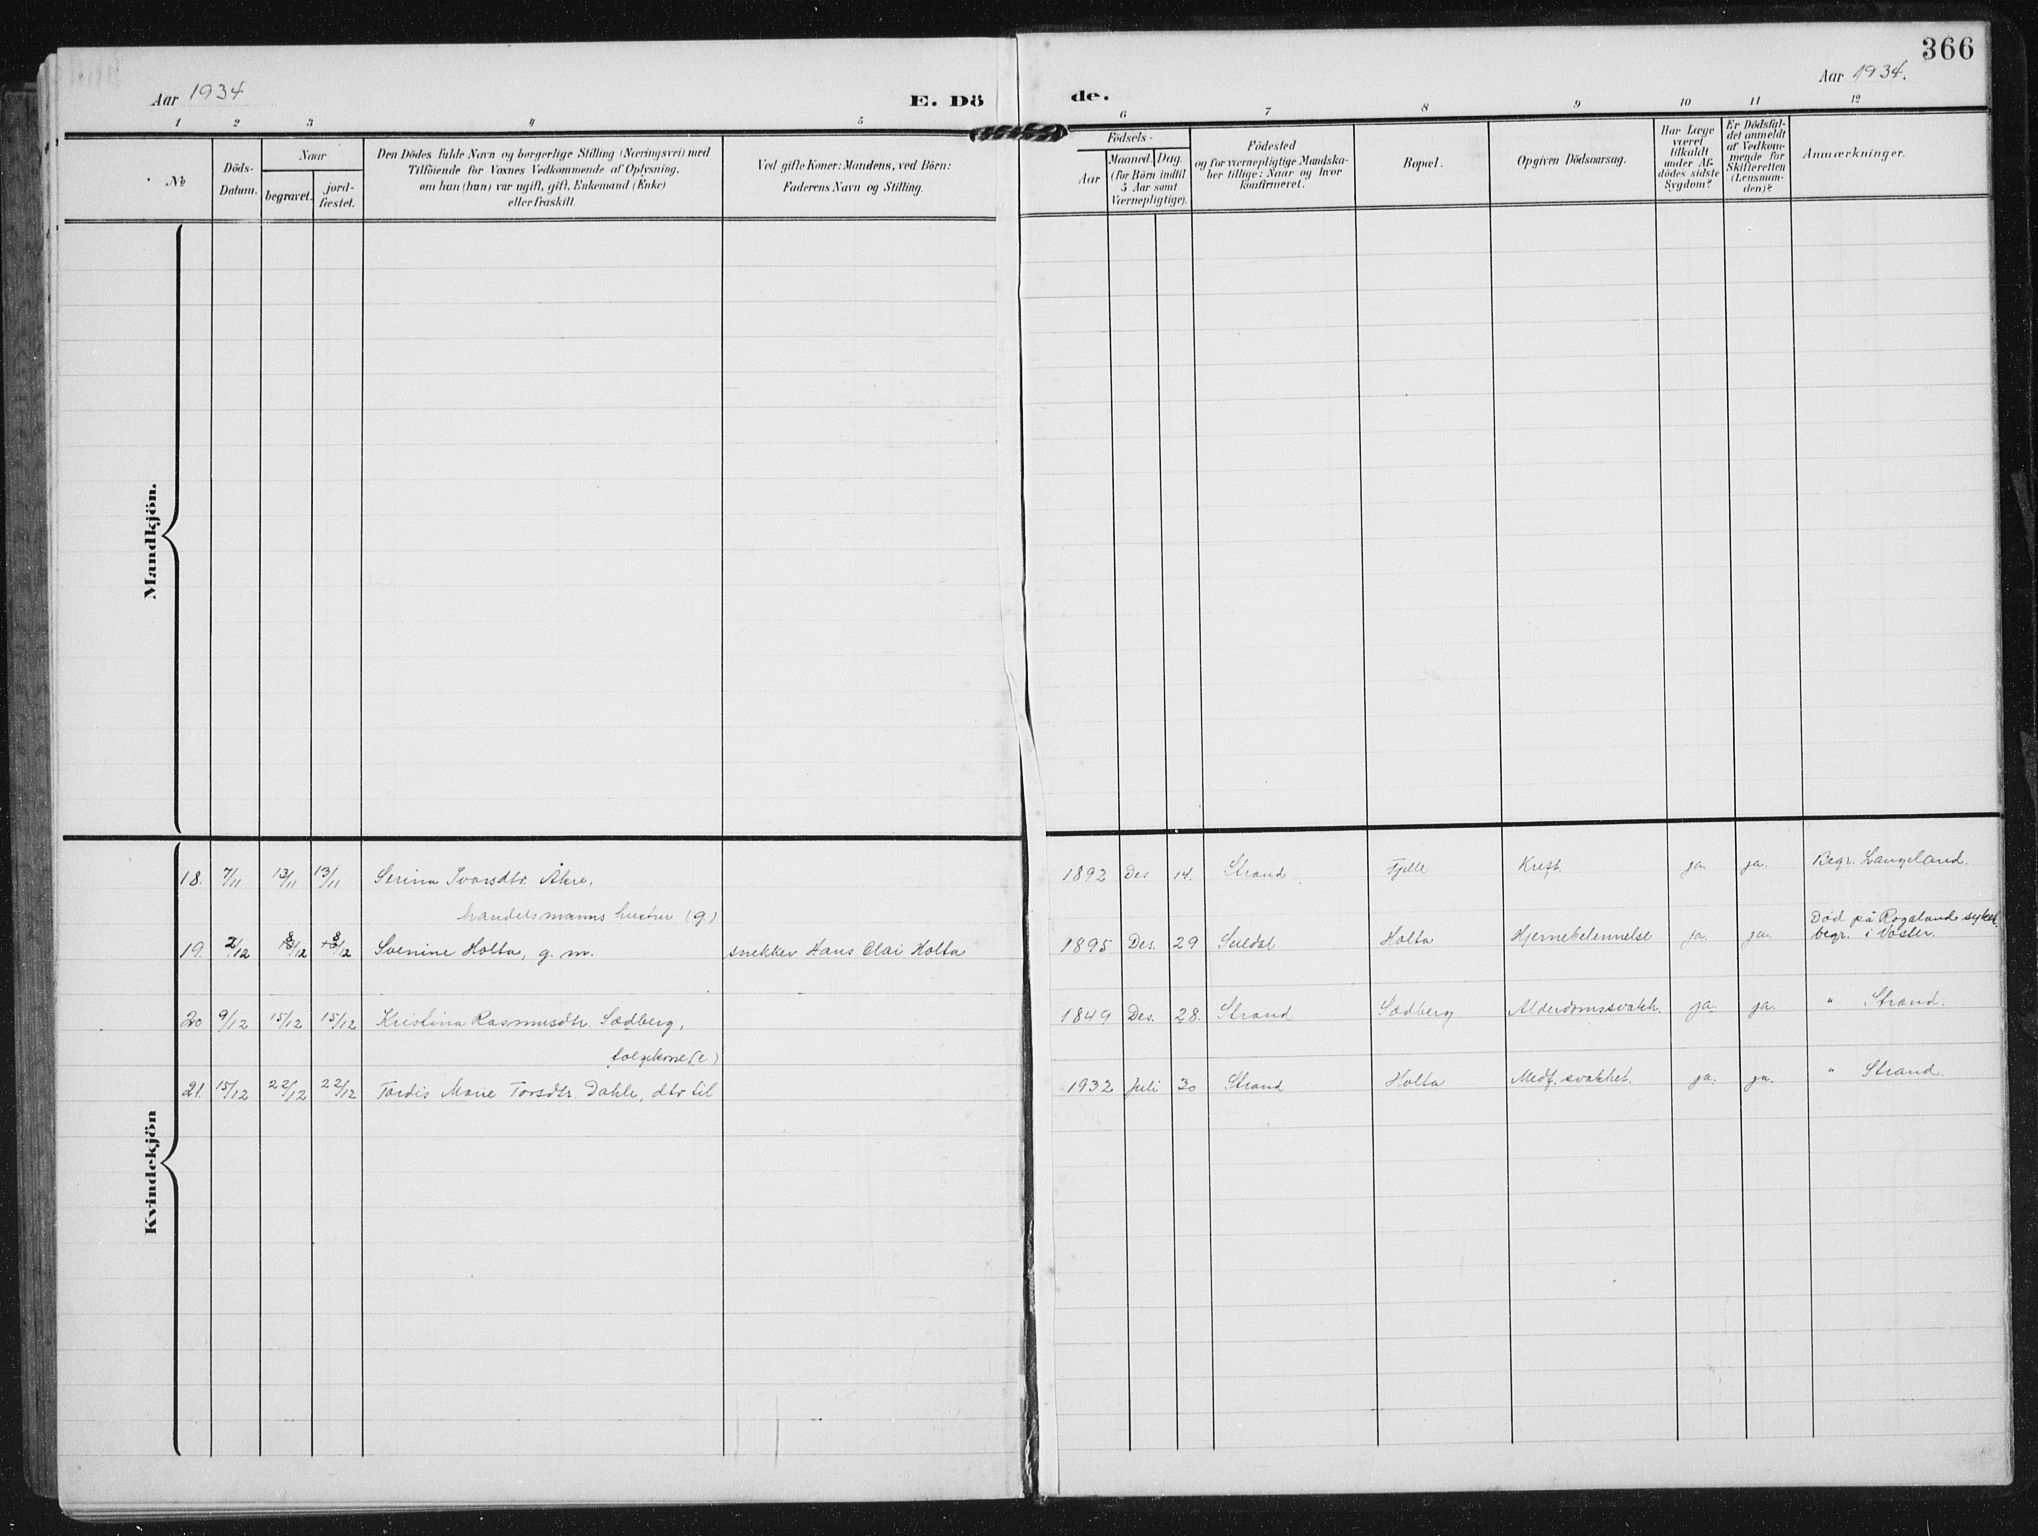 366
Aar 1934
E. Dö
de.
Aar 1934.
1 2 3 4 5
6 7 8 9 10 11 12
No
Döds-
Datum.
Naar
begravet.
jord-
fæstet.
Den Dödes fulde Navn og borgerlige Stilling (Næringsvei) med
Tilföiende for Voxnes Vedkommende af Oplysning,
om han (hun) var ugift, gift, Enkemand (Enke)
eller fraskilt.
Ved gifte Koner: Mandens, ved Börn:
Faderens Navn og Stilling.
Födsels-
Aar
Maaned. Dag.
(for Börn indtil
5 Aar samt
Værnepligtige).
Födested
og for værnepligtige Mandska-
ber tillige: Naar og hvor
konfirmeret.
Bopæl.
Opgiven Dödsaarsag.
Har Læge
været
tilkaldt
under Af-
dödes sidste
Sygdom?
Er Dödsfal-
det anmeldt
af Vedkom-
mende for
Skifteretten
(Lensman-
den)?
Anmærkninger.
Mandkjön.
Kvindekjön
18. 7/11 13/11 13/11 Serina Ivarsdtr. Åkre, 1892 Des 14. Strand Fjelle Kreft. ja. ja. Begr. Langeland.
hustru (g.)
Død på Rogaland sykeh.
19. 2/12 8/12 8/12 Svenine Holta, g. m. snekker Hans Olai Holta 1895 Des. 29 Suldal Holta Hjernebetennelse ja. ja. begr. i
20 9/12 15/12 15/12 Kristina Rasmusdtr. Sædberg, 1849 Des. 28. Strand Sædberg Alderdomssvakh. ja. ja. " Strand.
(e)
21. 15/12 22/12 22/12 Tordis Marie Torsdtr. Dahle, dtr til 1932 Juli 30 Strand Holta Medf. svakhet. ja. ja. " Strand.